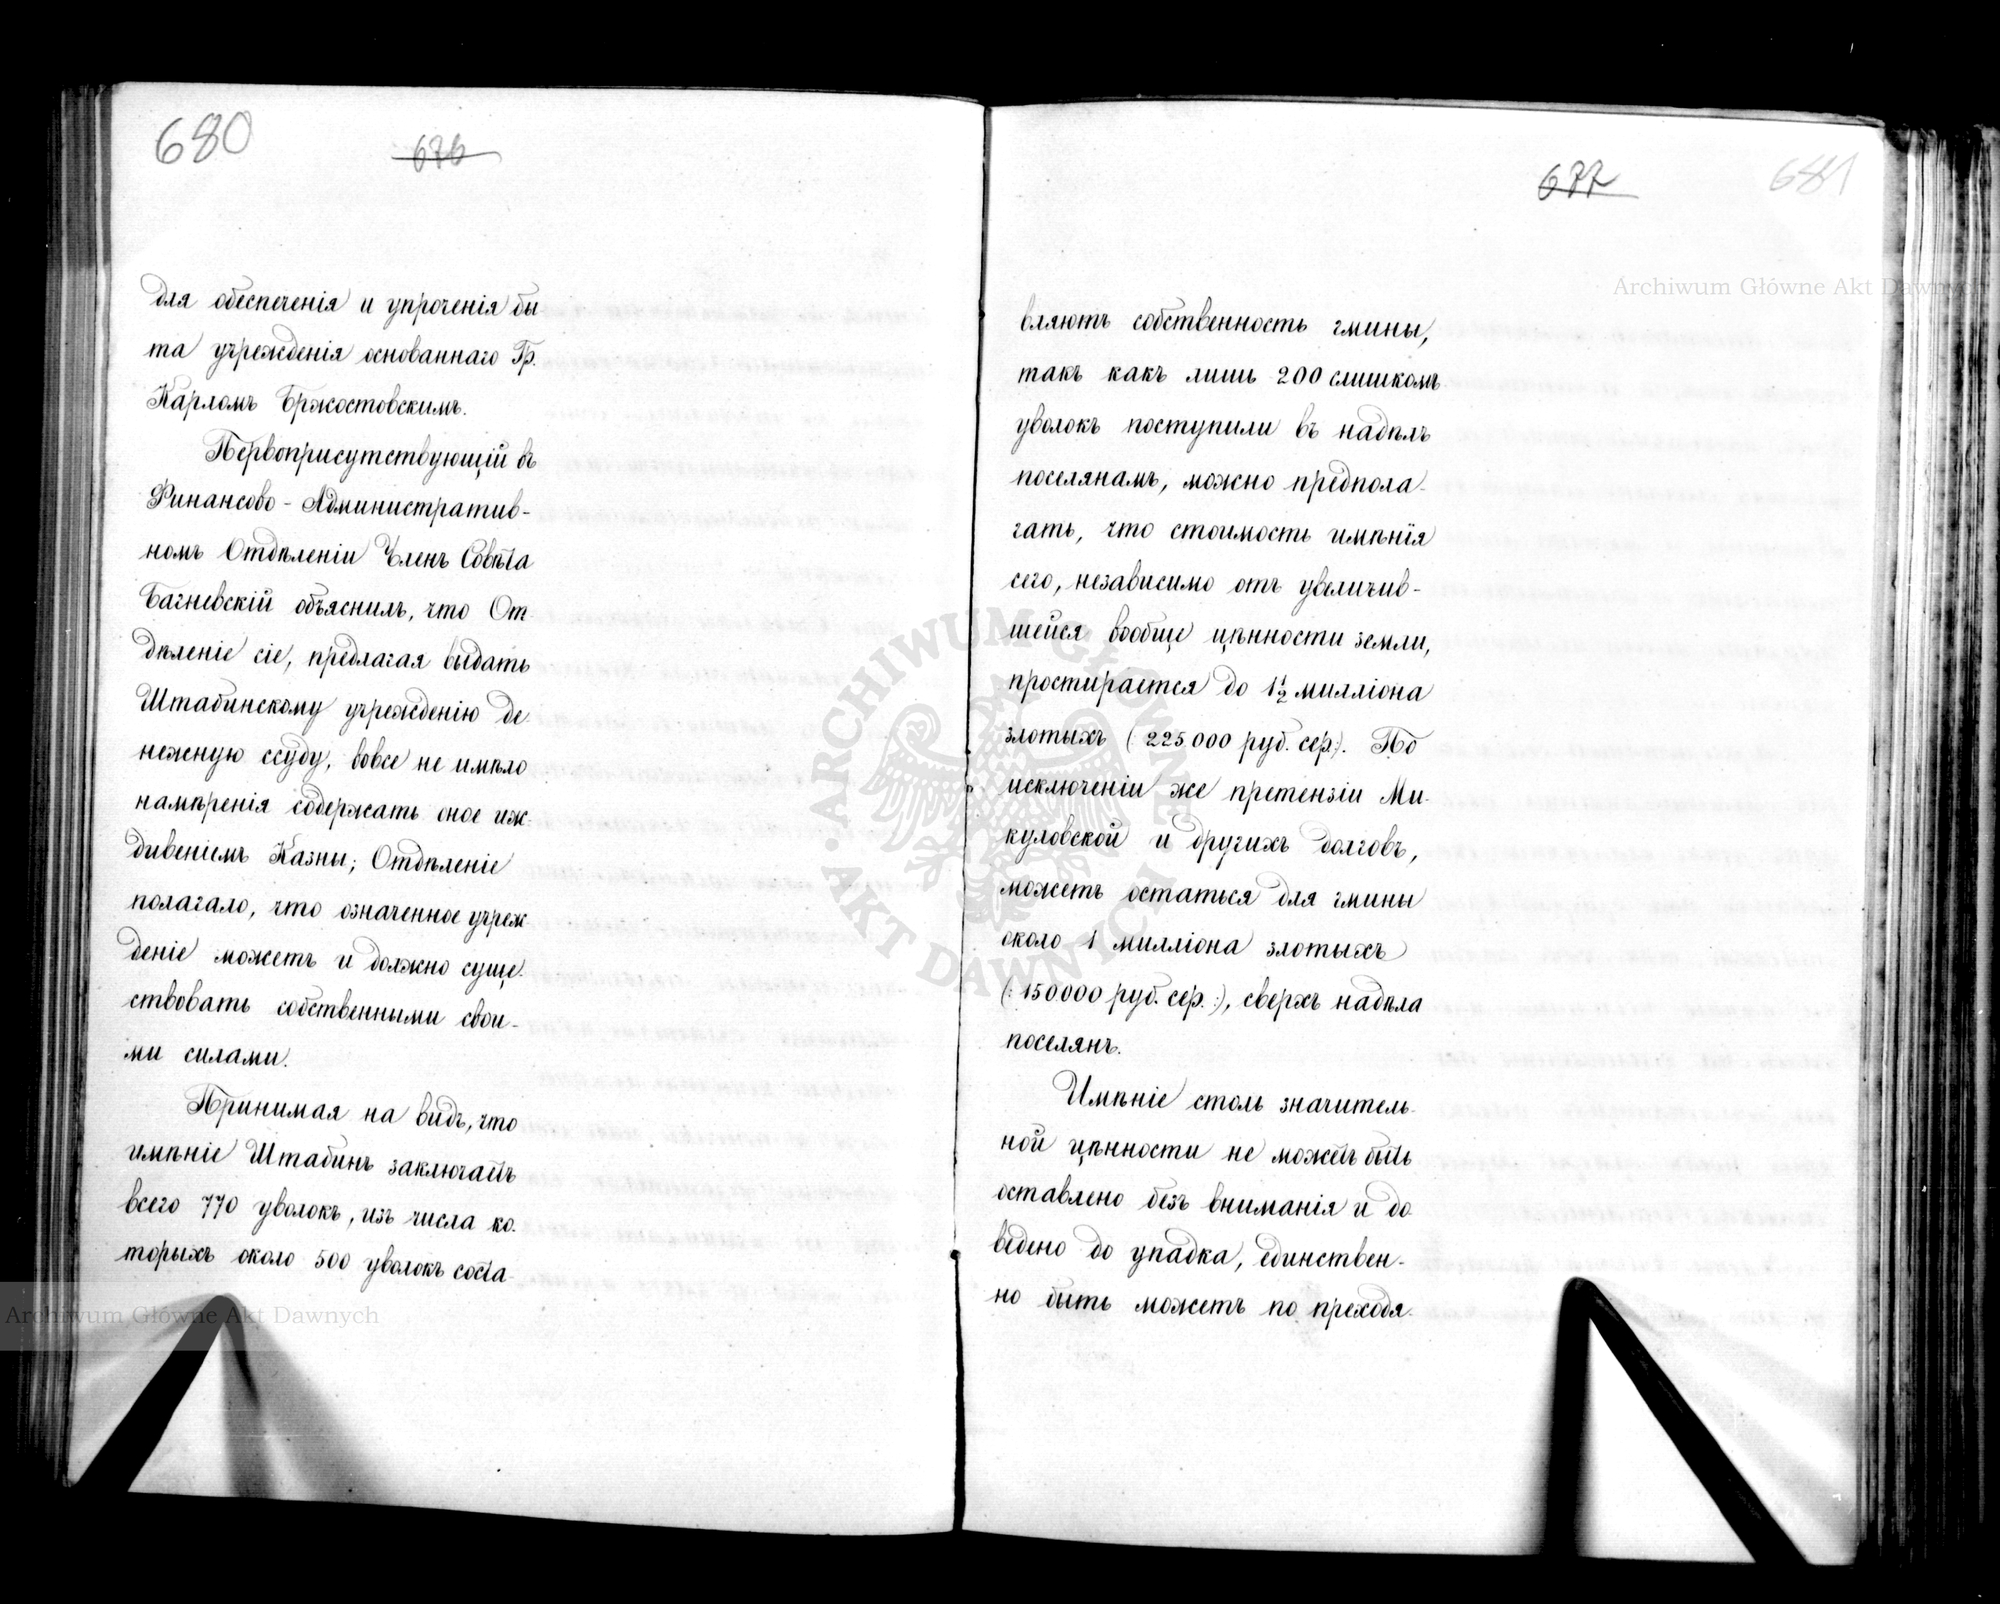 680
676
для обеспеченія и упроченія бы
та учрежденія основаннаго Гр.
Карломъ Бржостовскимъ.
Первоприсутствующій въ
Финансово-Административ-
номъ Отдѣленіи Членъ Совѣта
Багневскій объяснилъ, что От
дѣленіе сіе, предлагая выдать
Штабинскому учрежденію де
нежную ссуду, вовсе не имѣло
намѣренія содержать оное иж
дивеніемъ Казны; Отдѣленіе
полагало, что означенное учреж
деніе можетъ и должно суще-
ствовать собственными свои-
ми силами.
Принимая на видъ, что
имѣніе Штабинъ заключаетъ
всего 770 уволокъ, изъ числа ко-
торыхъ около 500 уволокъ соста-
677
681
вляютъ собственность гмины,
такъ какъ лишь 200 слишкомъ
уволокъ поступили въ надѣлъ
поселянамъ, можно предпола-
гать, что стоимость имѣнія
сего, независимо отъ увеличив-
шейся вообще цѣнности земли,
простирается до 1½ милліона
злотыхъ (225.000 руб. сер:). По
исключеніи же претензіи Ми-
куловской и другихъ долговъ,
можетъ остаться для гмины
около 1 милліона злотыхъ
(:150000 руб. сер.:), сверхъ надѣла
поселянъ.
Имѣніе столь значитель-
ной цѣнности не можетъ быть
оставлено безъ вниманія и до
ведено до упадка, единствен-
но быть можетъ по преходя-
Archiwum Główne Akt Dawnych
Archiwum Główne Akt Dawnych
ARCHIWUM GŁÓWNE
AKT DAWNYCH